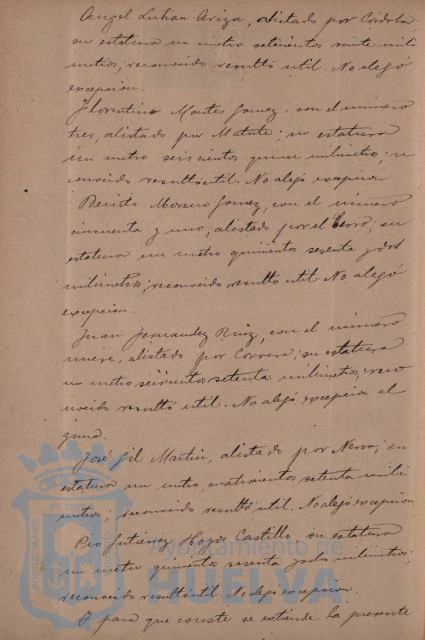 Angel Luhan Ariza, alistado por Córdoba
su estatura un metro setecientos veinte mili
metros, reconocido resultó util. No alegó
excepcion.
Florentino Montes Gomez, con el número
tres, alistado por Matute; su estatura
un metro seiscientos quince milimetros, re
conocido resultó util. No alegó excepcion
Benito Moreno Gomez, con el número
cincuenta y uno, alistado por el Cerro; su
estatura un metro quinientos sesenta y dos
milimetros; reconocido resultó util No alegó
excepcion.
Juan Fernandez Ruiz, con el número
nueve, alistado por Correra; su estatura
un metro seiscientos setenta milimetros; reco
nocido resultó util. No alegó excepcion al
guna.
José Gil Martin, alistado por Nerva; su
estatura un metro cuatrocientos setenta mili
metros, reconocido resultó util. No alegó excepcion
Pio Gutierrez Hozos Castillo, su estatura
un metro quinientos sesenta y dos milimetros;
reconocido resultó util No alegó excepcion.
Y para que conste se estiende la presente
Ayuntamiento de
HUELVA